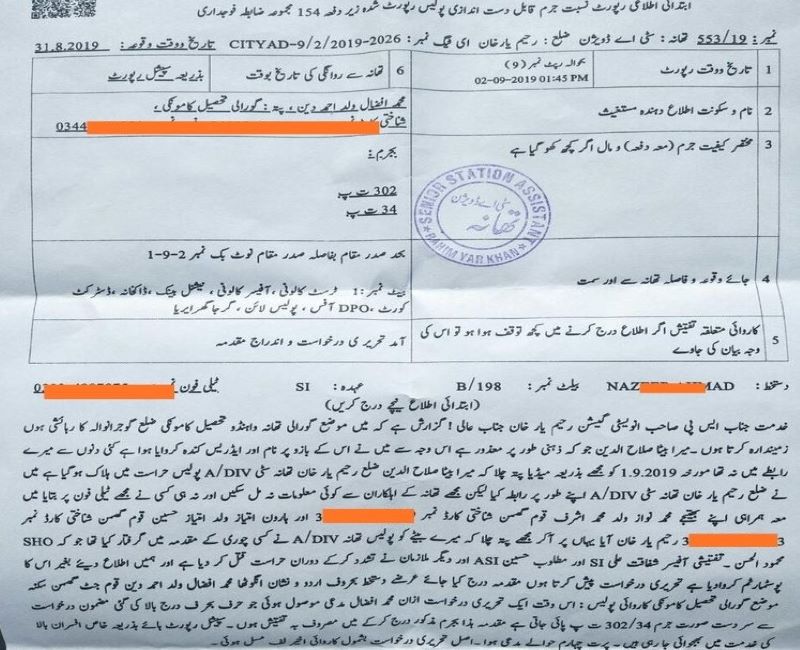 ابتدائی اطلاعی رپورٹ نسبت جرم قابل دست اندازی پولیس رپورٹ شدہ زیر دفعہ 154 مجموعہ ضابطہ فوجداری
نمبر: 553/19 تھانہ: سٹی اے ڈویژن ضلع: رحیم یار خان ای ٹیگ نمبر: CITYAD-9/2/2019-2026 تاریخ و وقت وقوعہ: 31.8.2019
1 تاریخ و وقت رپورٹ بحوالہ رپٹ نمبر (9) 02-09-2019 01:45 PM 6 تھانہ سے روانگی کی تاریخ و وقت بذریعہ سپیشل رپورٹ
2 نام و سکونت اطلاع دہندہ مستغیث محمد افضال ولد احمد دین، پتہ: گورالی تحصیل کامونکی،
شناختی 0344
3 مختصر کیفیت جرم (معہ دفعہ) و مال اگر کچھ کھو گیا ہے بجرم:
302 ت پ
34 ت پ
SENIOR STATION ASSISTANT
سٹی اے ڈویژن
تھانہ
RAHIM YAR KHAN
4 جائے وقوعہ و فاصلہ تھانہ سے اور سمت بحد صدر مقام بفاصلہ صدر مقام نوٹ بک نمبر 2-9-1
بیٹ نمبر: 1 ٹرسٹ کالونی، آفیسر کالونی، نیشنل بینک، ڈاکخانہ، ڈسٹرکٹ
کورٹ، DPO آفس، پولیس لائن، گرجا گھر ایریا
5 کاروائی متعلقہ تفتیش اگر اطلاع درج کرنے میں کچھ توقف ہوا ہو تو اس کی
وجہ بیان کی جاوے آمد تحریری درخواست و اندراج مقدمہ
دستخط: NAZ MAD بیلٹ نمبر: 198/B عہدہ: SI ٹیلی فون
(ابتدائی اطلاع نیچے درج کریں)
خدمت جناب ایس پی صاحب انویسٹی گیشن رحیم یار خان جناب عالی! گزارش ہے کہ میں موضع گورالی تھانہ واہنڈو تحصیل کامونکی ضلع گوجرانوالہ کا رہائشی ہوں
زمیندارہ کرتا ہوں۔ میرا بیٹا صلاح الدین جو کہ ذہنی طور پر معذور ہے اس وجہ سے میں نے اس کے بازو پر نام اور ایڈریس کندہ کروایا ہوا ہے کئی دنوں سے میرے
رابطے میں نہ تھا مورخہ 1.9.2019 کو مجھے بذریعہ میڈیا پتہ چلا کہ میرا بیٹا صلاح الدین ضلع رحیم یار خان تھانہ سٹی A/DIV پولیس حراست میں ہلاک ہو گیا ہے میں
نے ضلع رحیم یار خان تھانہ سٹی A/DIV اپنے طور پر رابطہ کیا لیکن مجھے تھانہ کے اہلکاران سے کوئی معلومات نہ مل سکیں اور نہ ہی کسی نے مجھے ٹیلی فون پر بتایا میں
معہ ہمراہی اپنے بھتیجے محمد نواز ولد محمد اشرف قوم گھمن شناختی کارڈ نمبر 3 اور ہارون امتیاز ولد امتیاز حسین قوم گھمن شناختی کارڈ نمبر
3 3 رحیم یار خان آیا یہاں پر آ کر مجھے پتہ چلا کہ میرے بیٹے کو پولیس تھانہ A/DIV نے کسی چوری کے مقدمہ میں گرفتار کیا تھا جو کہ SHO
محمود الحسن۔ تفتیشی آفیسر شفاقت علی SI اور مطلوب حسین ASI اور دیگر ملازمان نے تشدد کر کے دوران حراست قتل کر دیا ہے اور ہمیں اطلاع دیئے بغیر اس کا
پوسٹمارٹم کروا دیا ہے تحریری درخواست پیش کرتا ہوں مقدمہ درج کیا جائے عرضے دستخط بحروف اردو و نشان انگوٹھا محمد افضال ولد احمد دین قوم جٹ گھمن سکنہ
موضع گورالی تحصیل کامونکی کاروائی پولیس: اس وقت ایک تحریری درخواست ازان محمد افضال مدعی موصول ہوئی جو حرف بحرف درج بالا کی گئی مضمون درخواست
سے سردست صورت جرم 302/34 ت پ پائی جاتی ہے مقدمہ ہذا بجرم مذکور درج کر کے میں مصروف بہ تفتیش ہوں۔ سپیشل رپورٹ ہائے بذریعہ خاص افسران بالا
کی خدمت میں بھجوائی جا رہی ہیں۔ پرت چہارم حوالے مدعی ہوا۔ اصل تحریری درخواست بشمول کاروائی لف مسل ہوئی۔